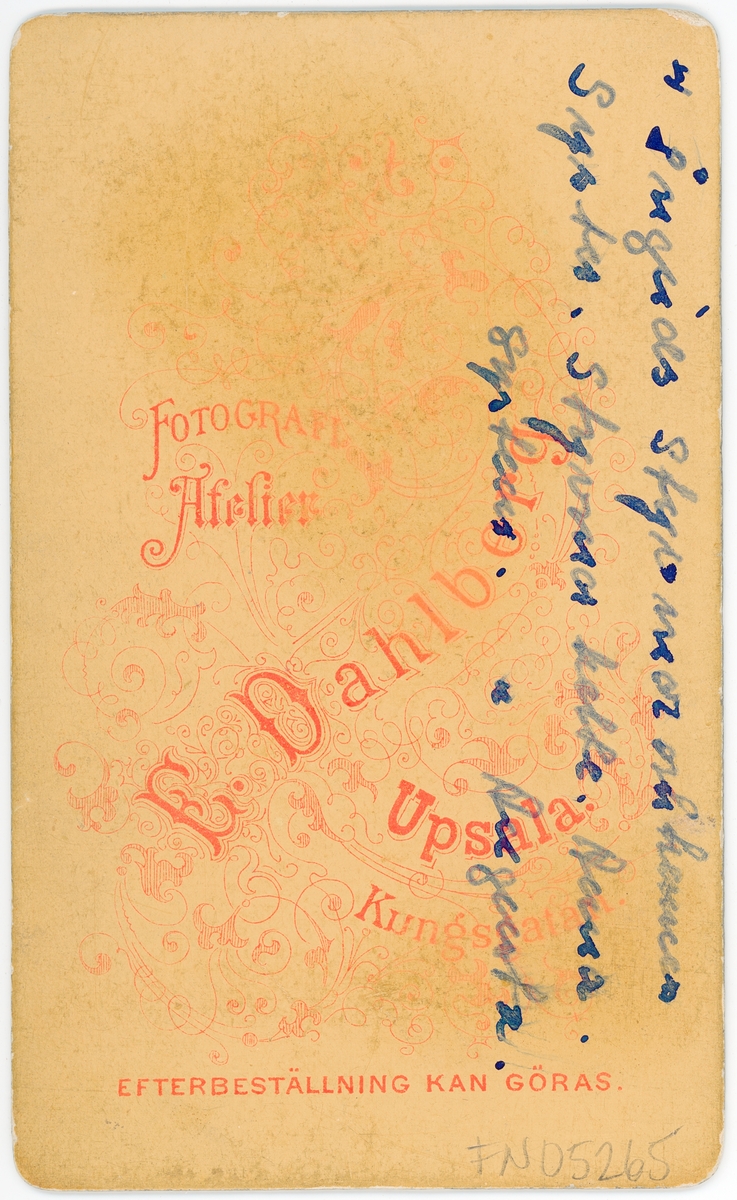 FOTOGRAFI
Atelier
E. Dahlberg
Upsala.
Kungsgatan.
EFTERBESTÄLLNING KAN GÖRAS.
" Ingrids Styvmor och hennes
Syster. Styvmor hette.
Syster. "
FN05265